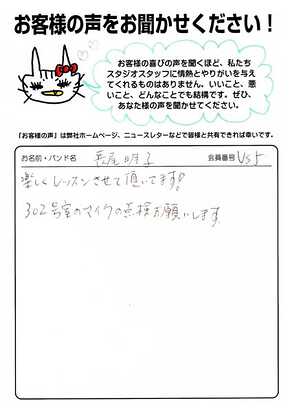 お客様の声をお聞かせください！
お客様の喜びの声を聞くほど、私たち
スタジオスタッフに情熱とやりがいを与え
てくれるものはありません。いいこと、悪
いこと、どんなことでも結構です。ぜひ、
あなた様の声を聞かせてください。
「お客様の声」は弊社ホームページ、ニュースレターなどで皆様と共有できれば幸いです。
お名前・バンド名 長尾明子 会員番号
楽しくレッスンさせて頂いてます!
302号室のマイクの点検お願いします